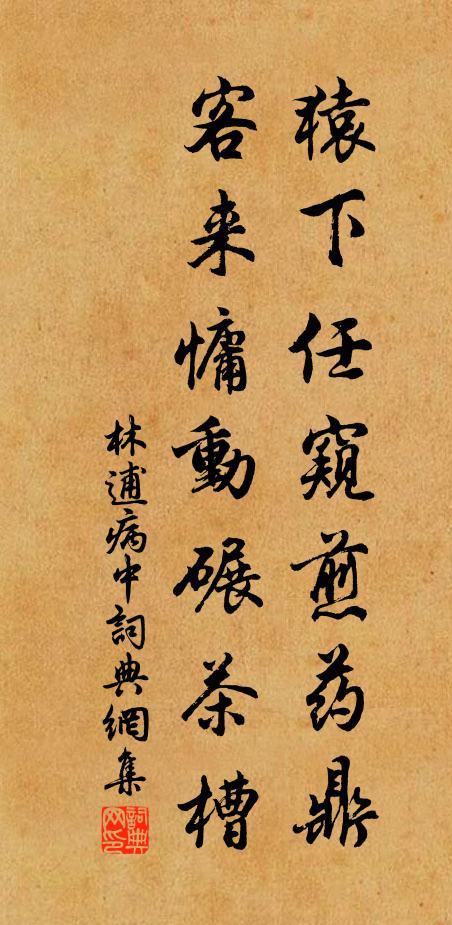 猿下任窺煎药鼎
客来慵動碾茶槽
林逋病中詞典網集
詞典網印